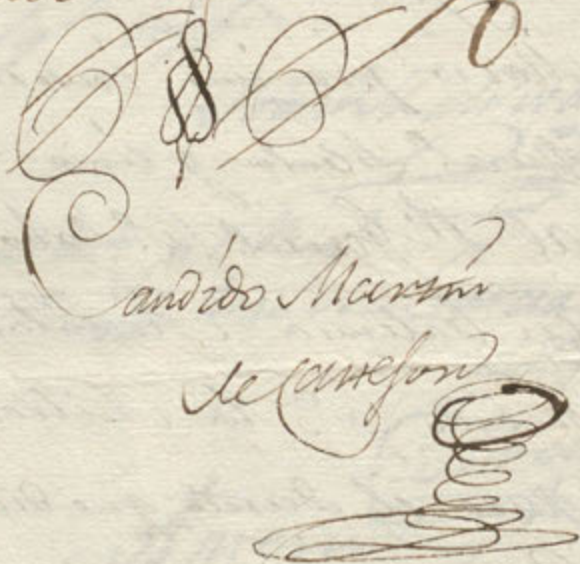 Candido Martin
de Carrejon